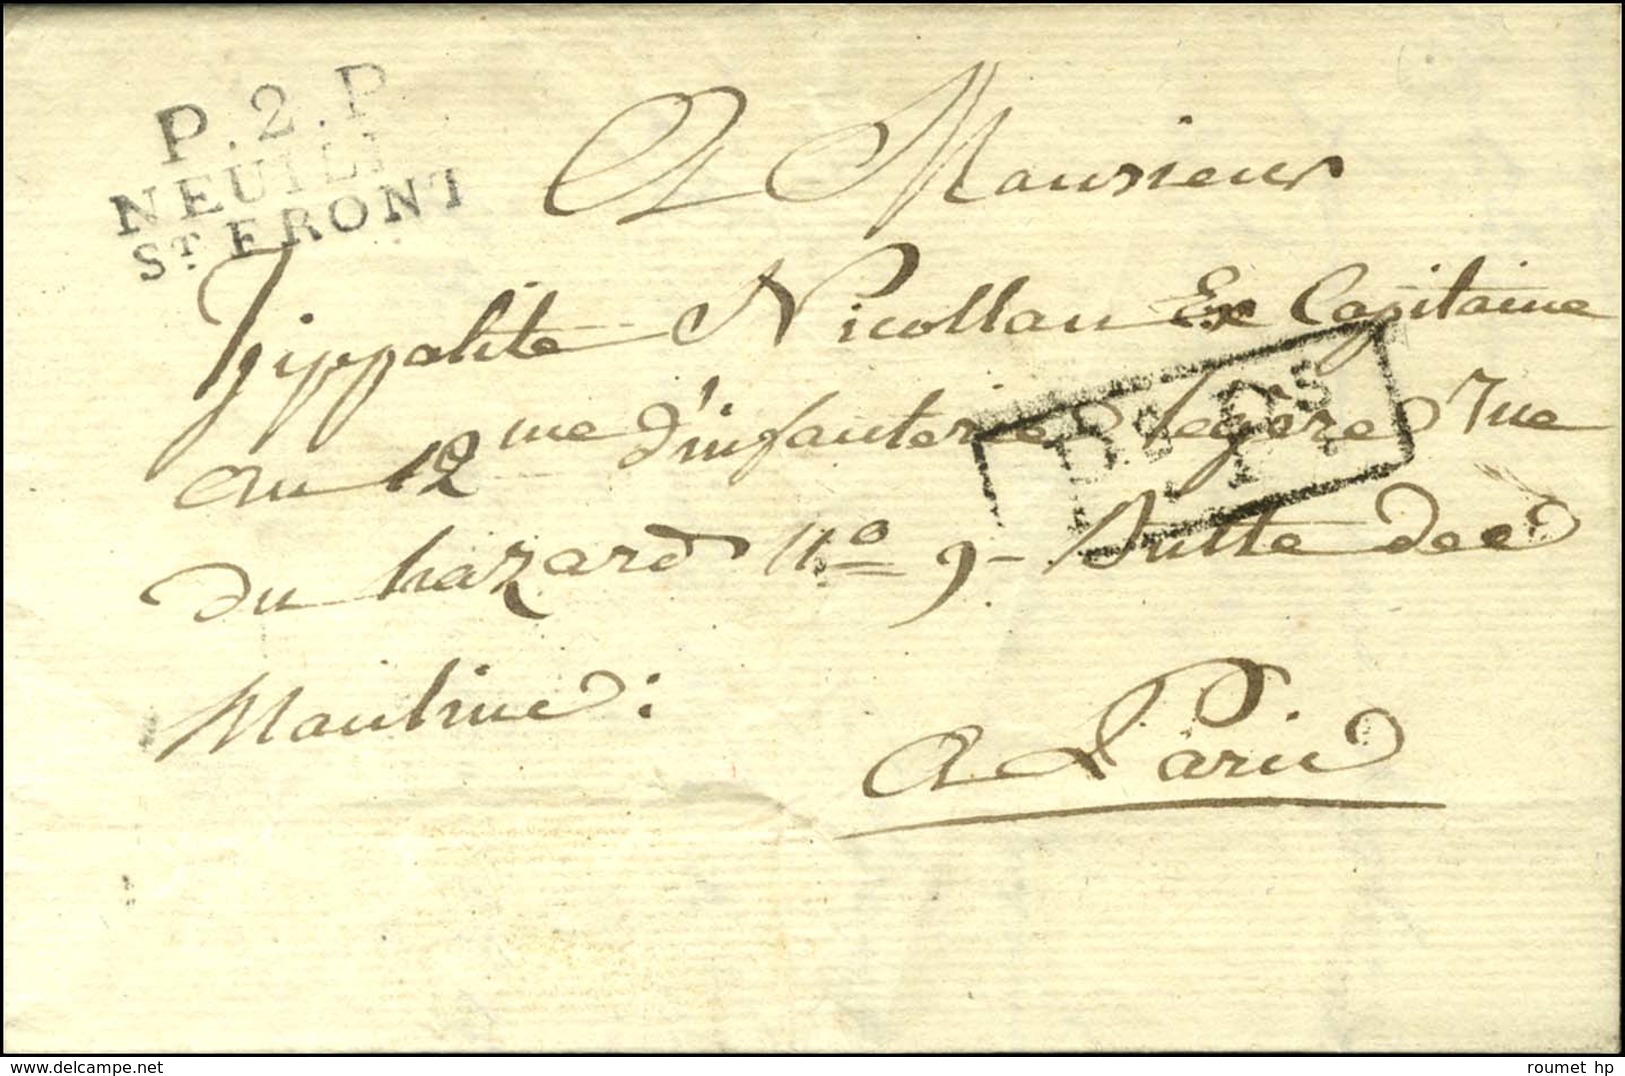 P.2.P
NEUILLI
ST FRONT
A Monsieur
hippolite Nicollau Ex Capitaine
au 12me d'infanterie legère rue
du hazard No 9 - Butte des
Moulins :
A Paris
Da Ps
roumet hp